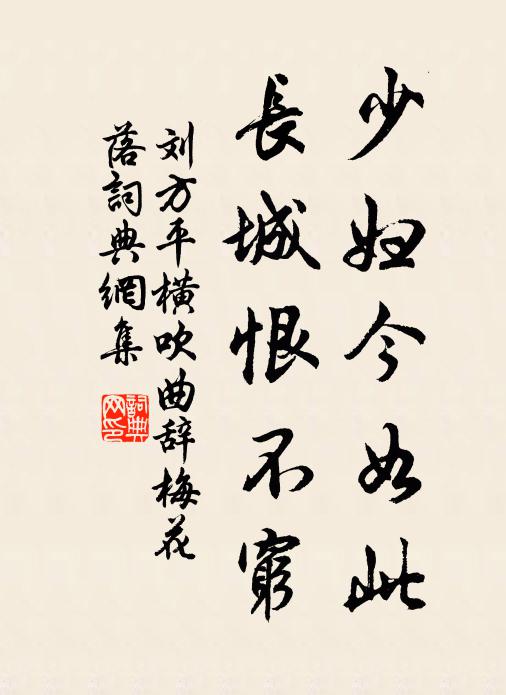 少妇今如此
長城恨不窮
刘方平横吹曲辞梅花
落詞典網集
詞典
网印